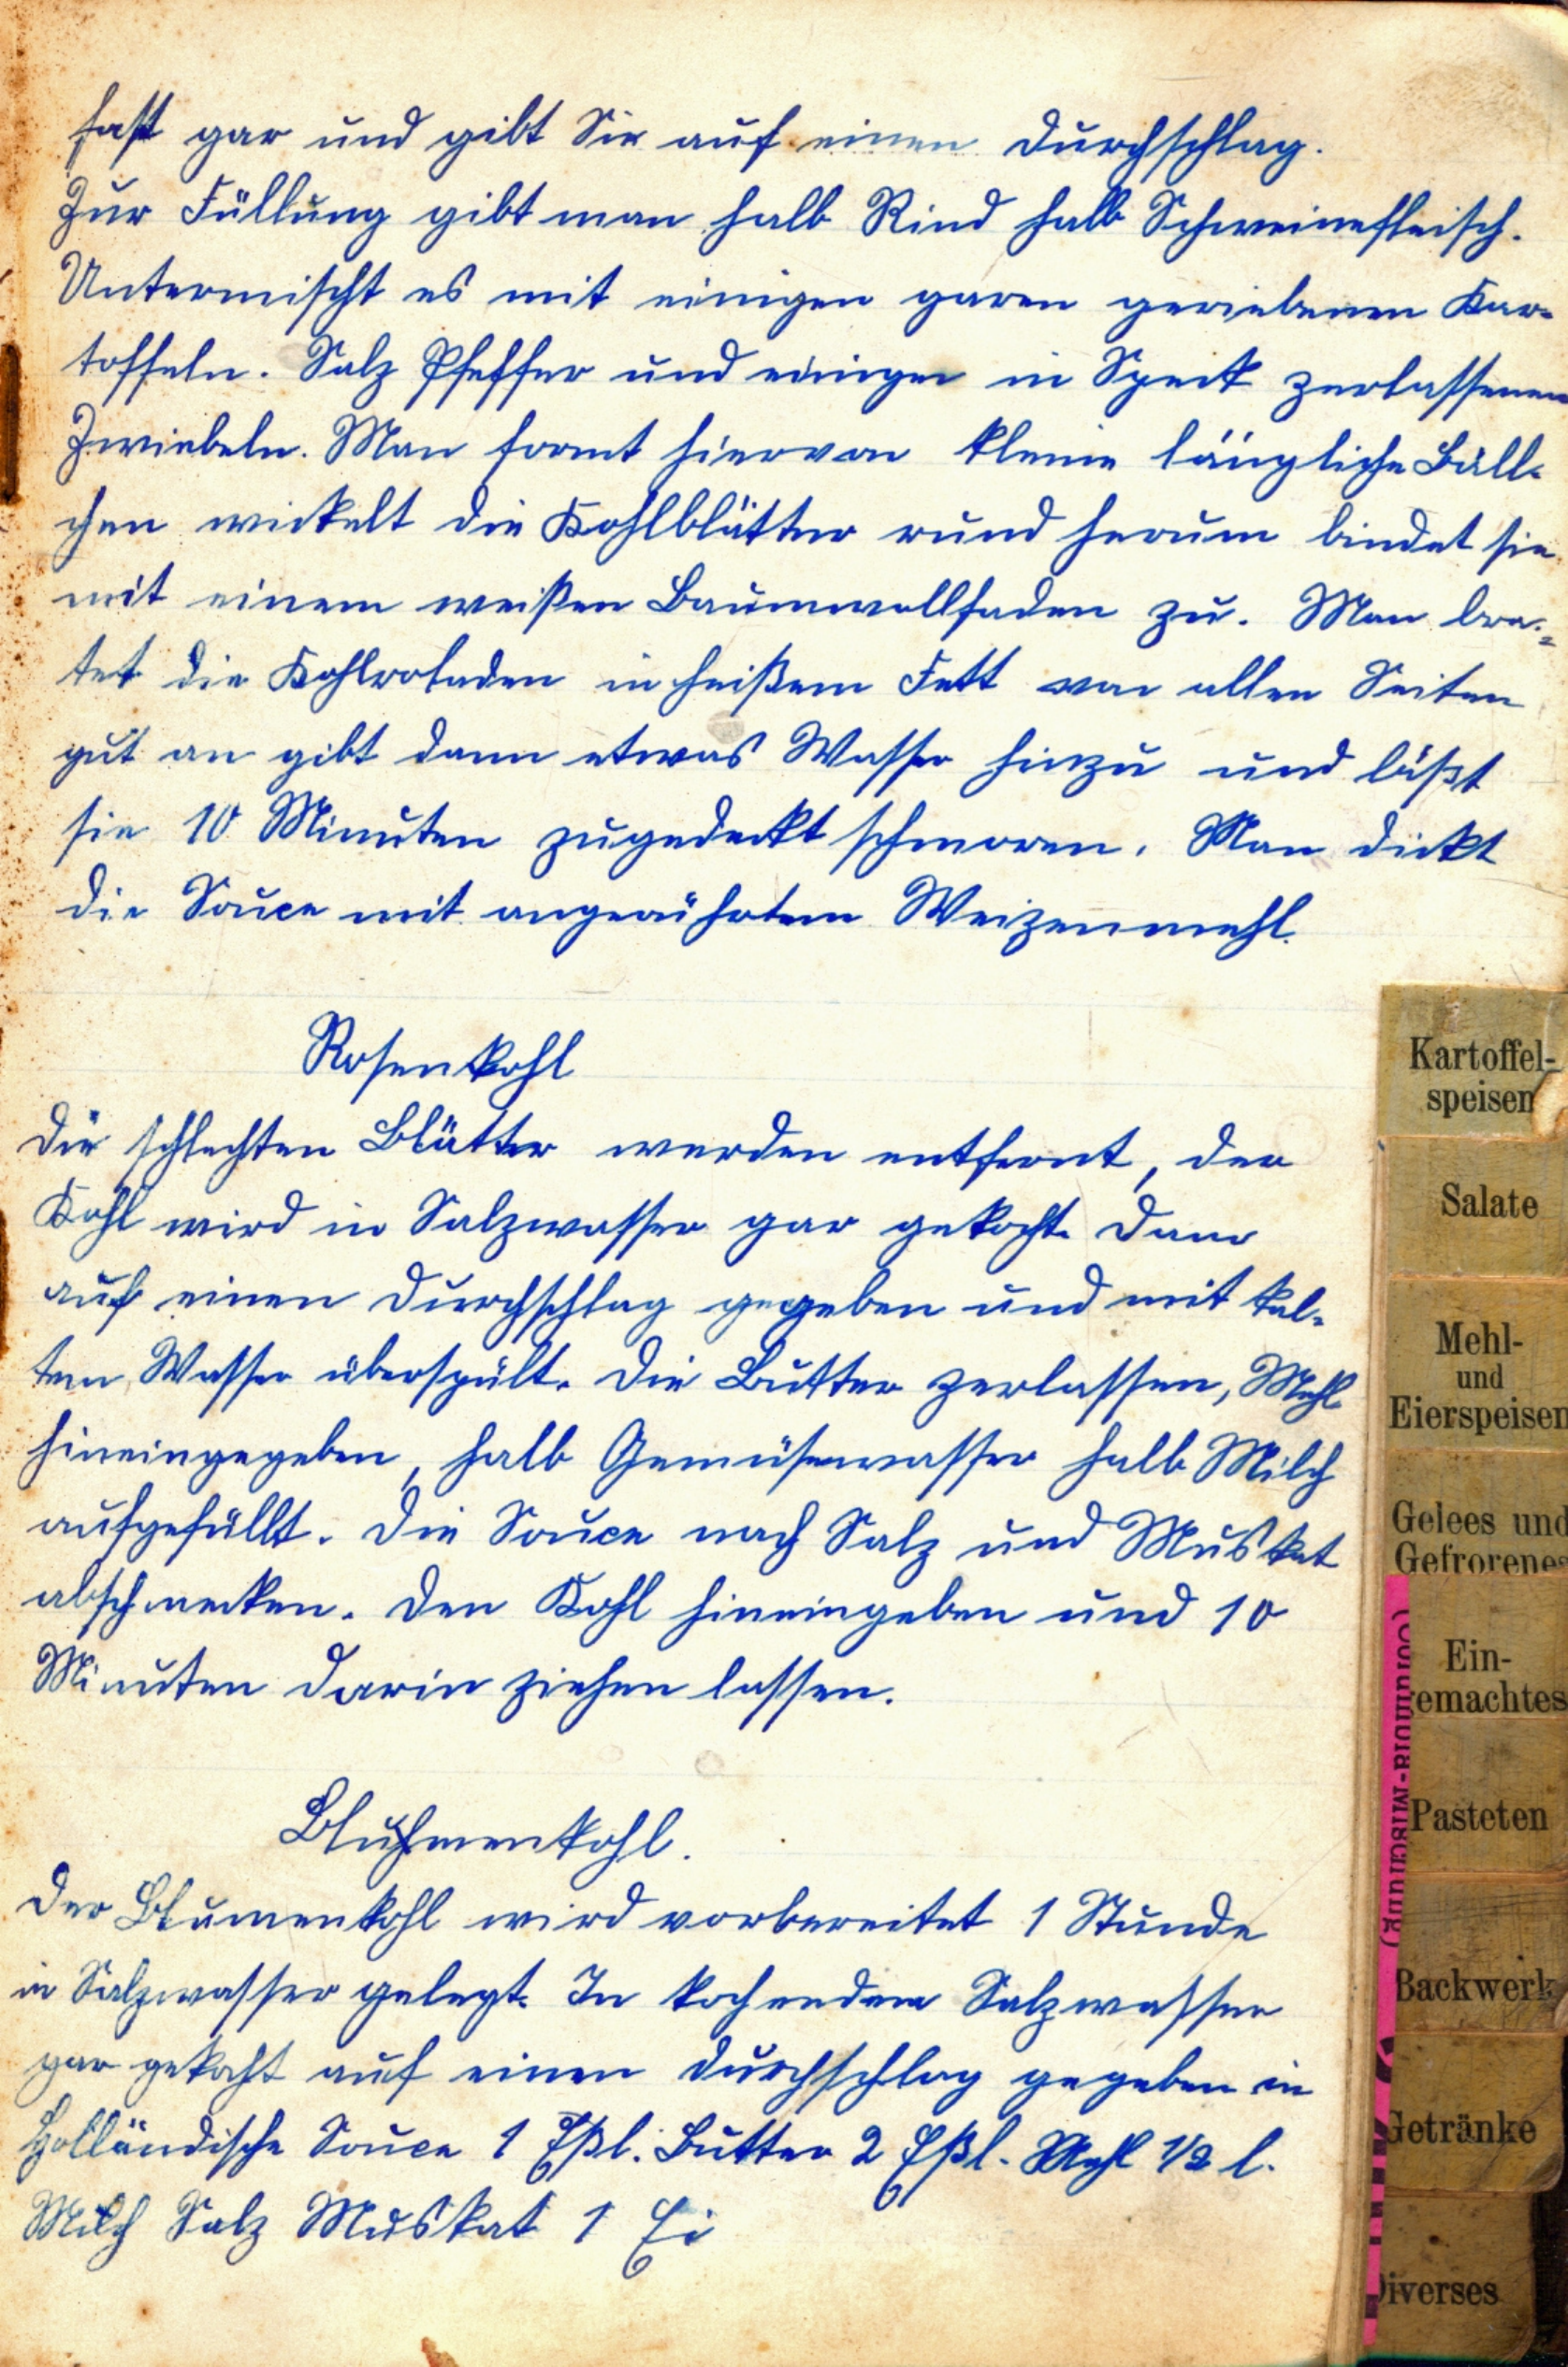 fast gar und gibt Sie auf einen Durchschlag.
Zur Füllung gibt man halb Rind halb Schweinefleisch.
Untermischt es mit einigen garen geriebenen Kar-
toffeln. Salz Pfeffer und einigen in Speck zerlassenen
Zwiebeln. Man formt hiervon kleine längliche Bäll-
chen wickelt die Kohlblätter rund herum bindet sie
mit einem weißen Baumwollfaden zu. Man bra-
tet die Kohlroladen in heißem Fett von allen Seiten
gut an gibt dann etwas Wasser hinzu und läßt
sie 10 Minuten zugedeckt schmoren. Man dickt
die Souce mit angerührtem Weizenmehl.
Rosenkohl
Die schlechten Blätter werden entfernt, der
Kohl wird in Salzwasser gar gekocht. Dann
auf einen Durchschlag gegeben und mit kal-
tem Wasser überspült. Die Butter zerlassen, Mehl
hineingegeben, halb Gemüsewasser halb Milch
aufgefüllt. Die Souce nach Salz und Muskat
abschmecken. Den Kohl hineingeben und 10
Minuten darin ziehen lassen.
Bluhmenkohl.
Der Blumenkohl wird vorbereitet 1 Stunde
in Salzwasser gelegt. In kochendem Salzwasser
gar gekocht auf einen Durchschlag gegeben in
Holländische Souce 1 Eßl. Butter 2 Eßl. Mehl 1/2 l.
Milch Salz Muskat 1 Ei
Kartoffel-
speisen
Salate
Mehl-
und
Eierspeisen
Gelees und
Gefrorenes
Ein-
gemachtes
Pasteten
Backwerk
Getränke
Diverses